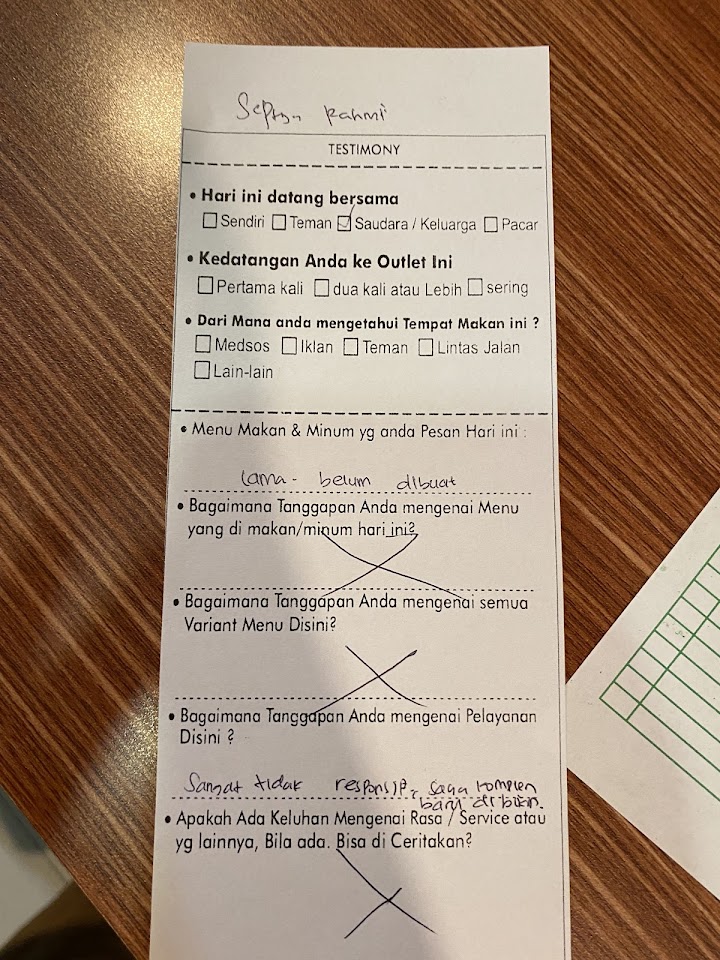 Septya Rahmi
TESTIMONY
• Hari ini datang bersama
☐ Sendiri ☐ Teman ☑ Saudara / Keluarga ☐ Pacar
• Kedatangan Anda ke Outlet Ini
☐ Pertama kali ☐ dua kali atau Lebih ☐ sering
• Dari Mana anda mengetahui Tempat Makan ini ?
☐ Medsos ☐ Iklan ☐ Teman ☐ Lintas Jalan
☐ Lain-lain
• Menu Makan & Minum yg anda Pesan Hari ini :
Lama - belum dibuat
• Bagaimana Tanggapan Anda mengenai Menu
yang di makan/minum hari ini?
• Bagaimana Tanggapan Anda mengenai semua
Variant Menu Disini?
• Bagaimana Tanggapan Anda mengenai Pelayanan
Disini ?
Sangat tidak responsif, saya komplen
baru dibikin.
• Apakah Ada Keluhan Mengenai Rasa / Service atau
yg lainnya, Bila ada. Bisa di Ceritakan?